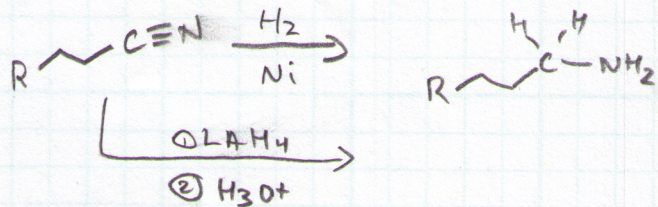 R C≡N H2 Ni
R C H H NH2
① LAH4
② H3O+